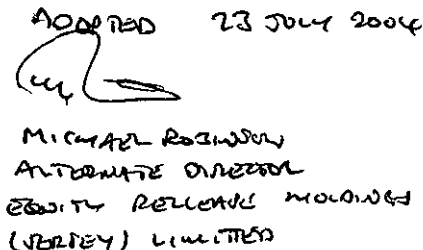 ADOPTED 23 JULY 2004
MICHAEL ROBINSON
ALTERNATE DIRECTOR
EQUITY RELEASE HOLDINGS
(JERSEY) LIMITED